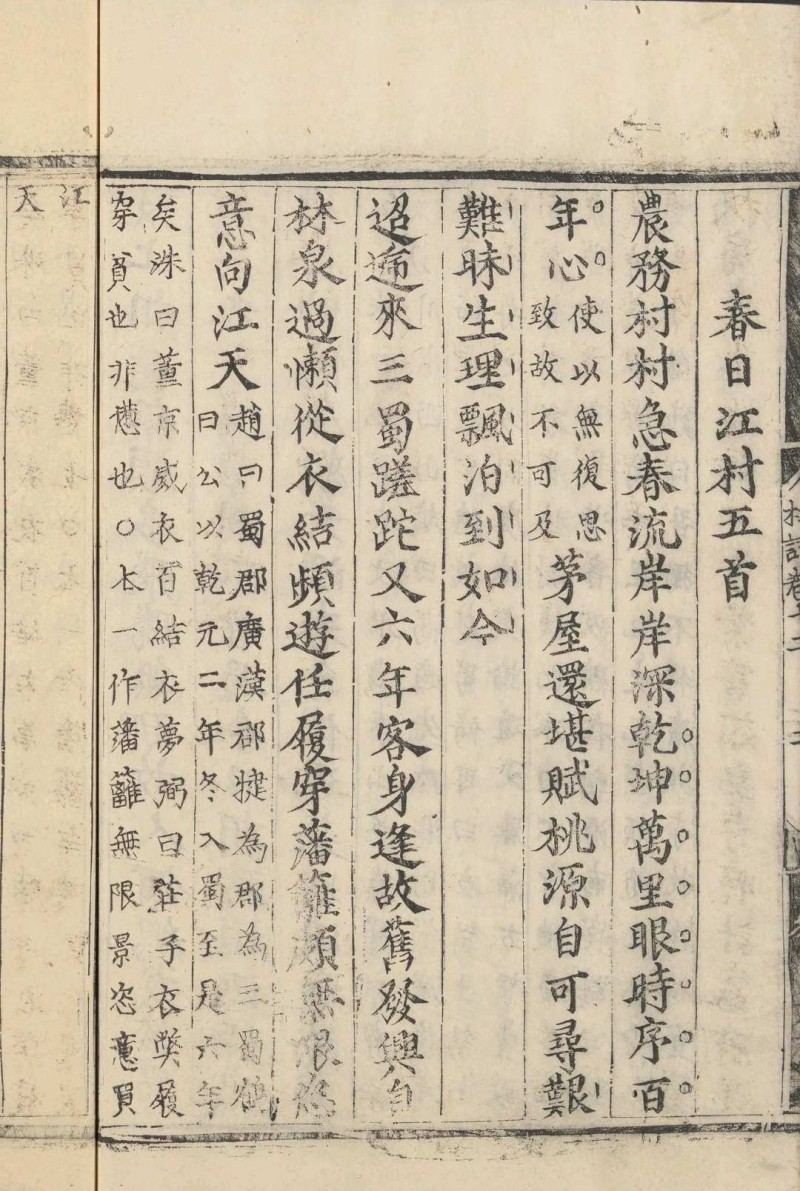 春日江村五首
農務村村急春流岸岸深乾坤萬里眼時序百
年心使以無復思致故不可及茅屋還堪賦桃源自可尋艱
難昧生理飄泊到如今
迢遞來三蜀蹉跎又六年客身逢故舊發興自
林泉過懶從衣結頻遊任履穿藩籬頗無限恣
意向江天趙曰蜀郡廣漢郡犍為郡為三蜀鶴曰公以乾元二年冬入蜀至是六年
矣洙曰董京威衣百結衣夢弼曰莊子衣獘履
穿貧也非憊也○一作藩籬無限景恣意買
江
天